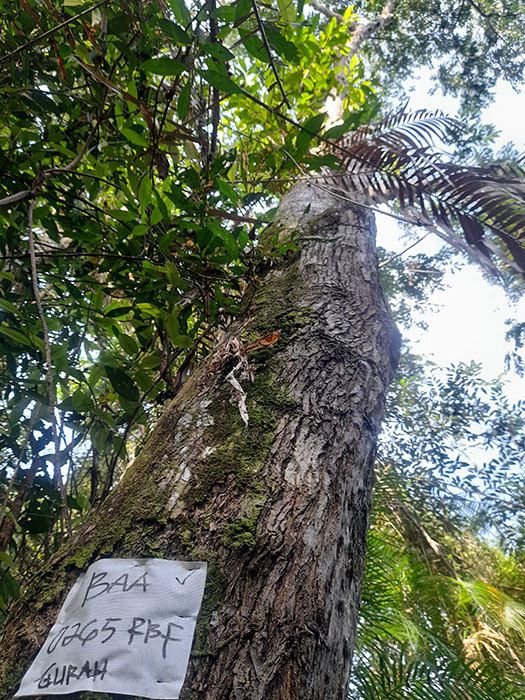 BAA ✓
0265 RBF
GURAH